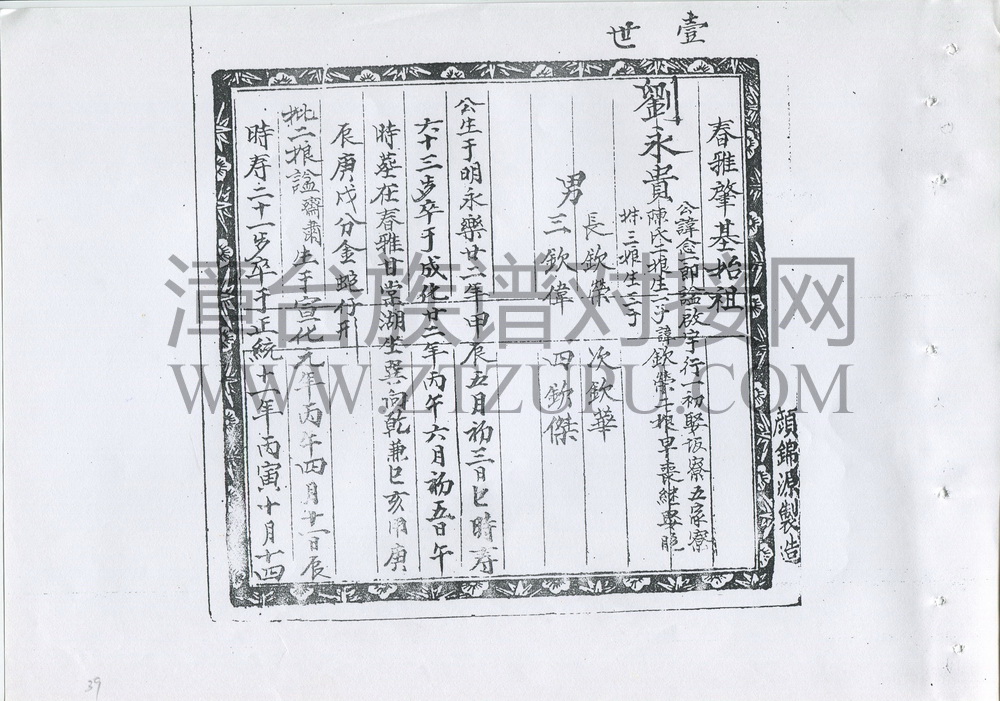 壹世
春雅肇基始祖
劉永貴
公諱愈一郎諡啟宇行一初娶坂寮五家寮
陳氏二娘生一子諱欽榮二娘早喪繼娶
妹三娘生三子
男
長欽榮 次欽華
三欽偉 四欽傑
公生于明永樂廿二年甲辰五月初三日巳時寿
六十三歩卒于成化廿二年丙午六月初五日午
時葬在春雅甘棠湖坐巽向乾兼巳亥用庚
辰庚戌分金蛇仔形
妣二娘諡齋肅生于宣化元年丙午四月廿一日辰
時寿二十一歩卒于正統十一年丙寅十月十四
顔錦源製造
漳台族谱对接网
WWW.ZIZULU.COM
39